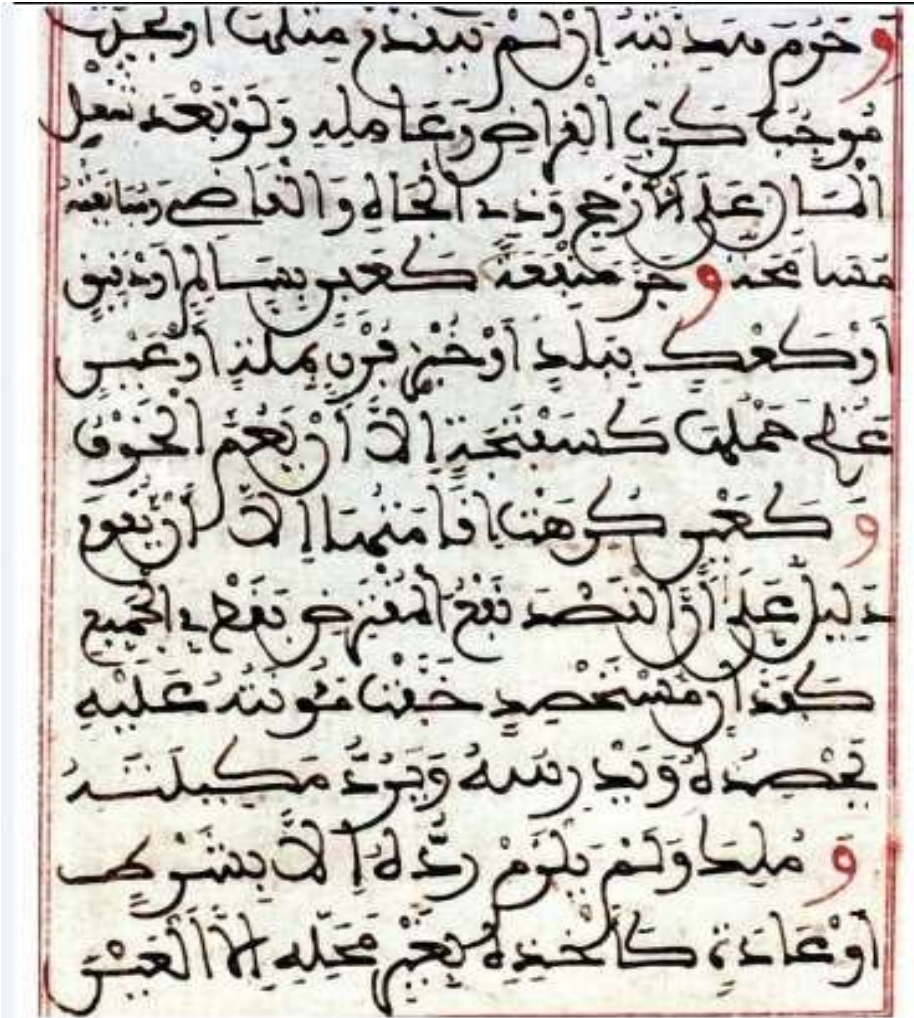 و حرم هديته إن لم يتقدم مثلها أو يحدث
موجب كرب القراض وعامله ولو بعد شغل
المال على الأرجح وذي الجاه والقاضي ومبايعته
مسامحة و جر منفعة كعفن بسالم أو دقيق
أو كعك ببلد أو خبز فرن بملة أو عين
عظم حملها كسفتجة إلا أن يعم الخوف
و كعين كرهت إقامتها إلا أن يقوم
دليل على أن القصد نفع المقترض فقط في الجميع
كفدان مستحصد خفت مئونته عليه
يحصده ويدرسه ويرد مكيلته
و ملك ولم يلزم رده إلا بشرط
أو عادة كأخذه بغير محله إلا العين